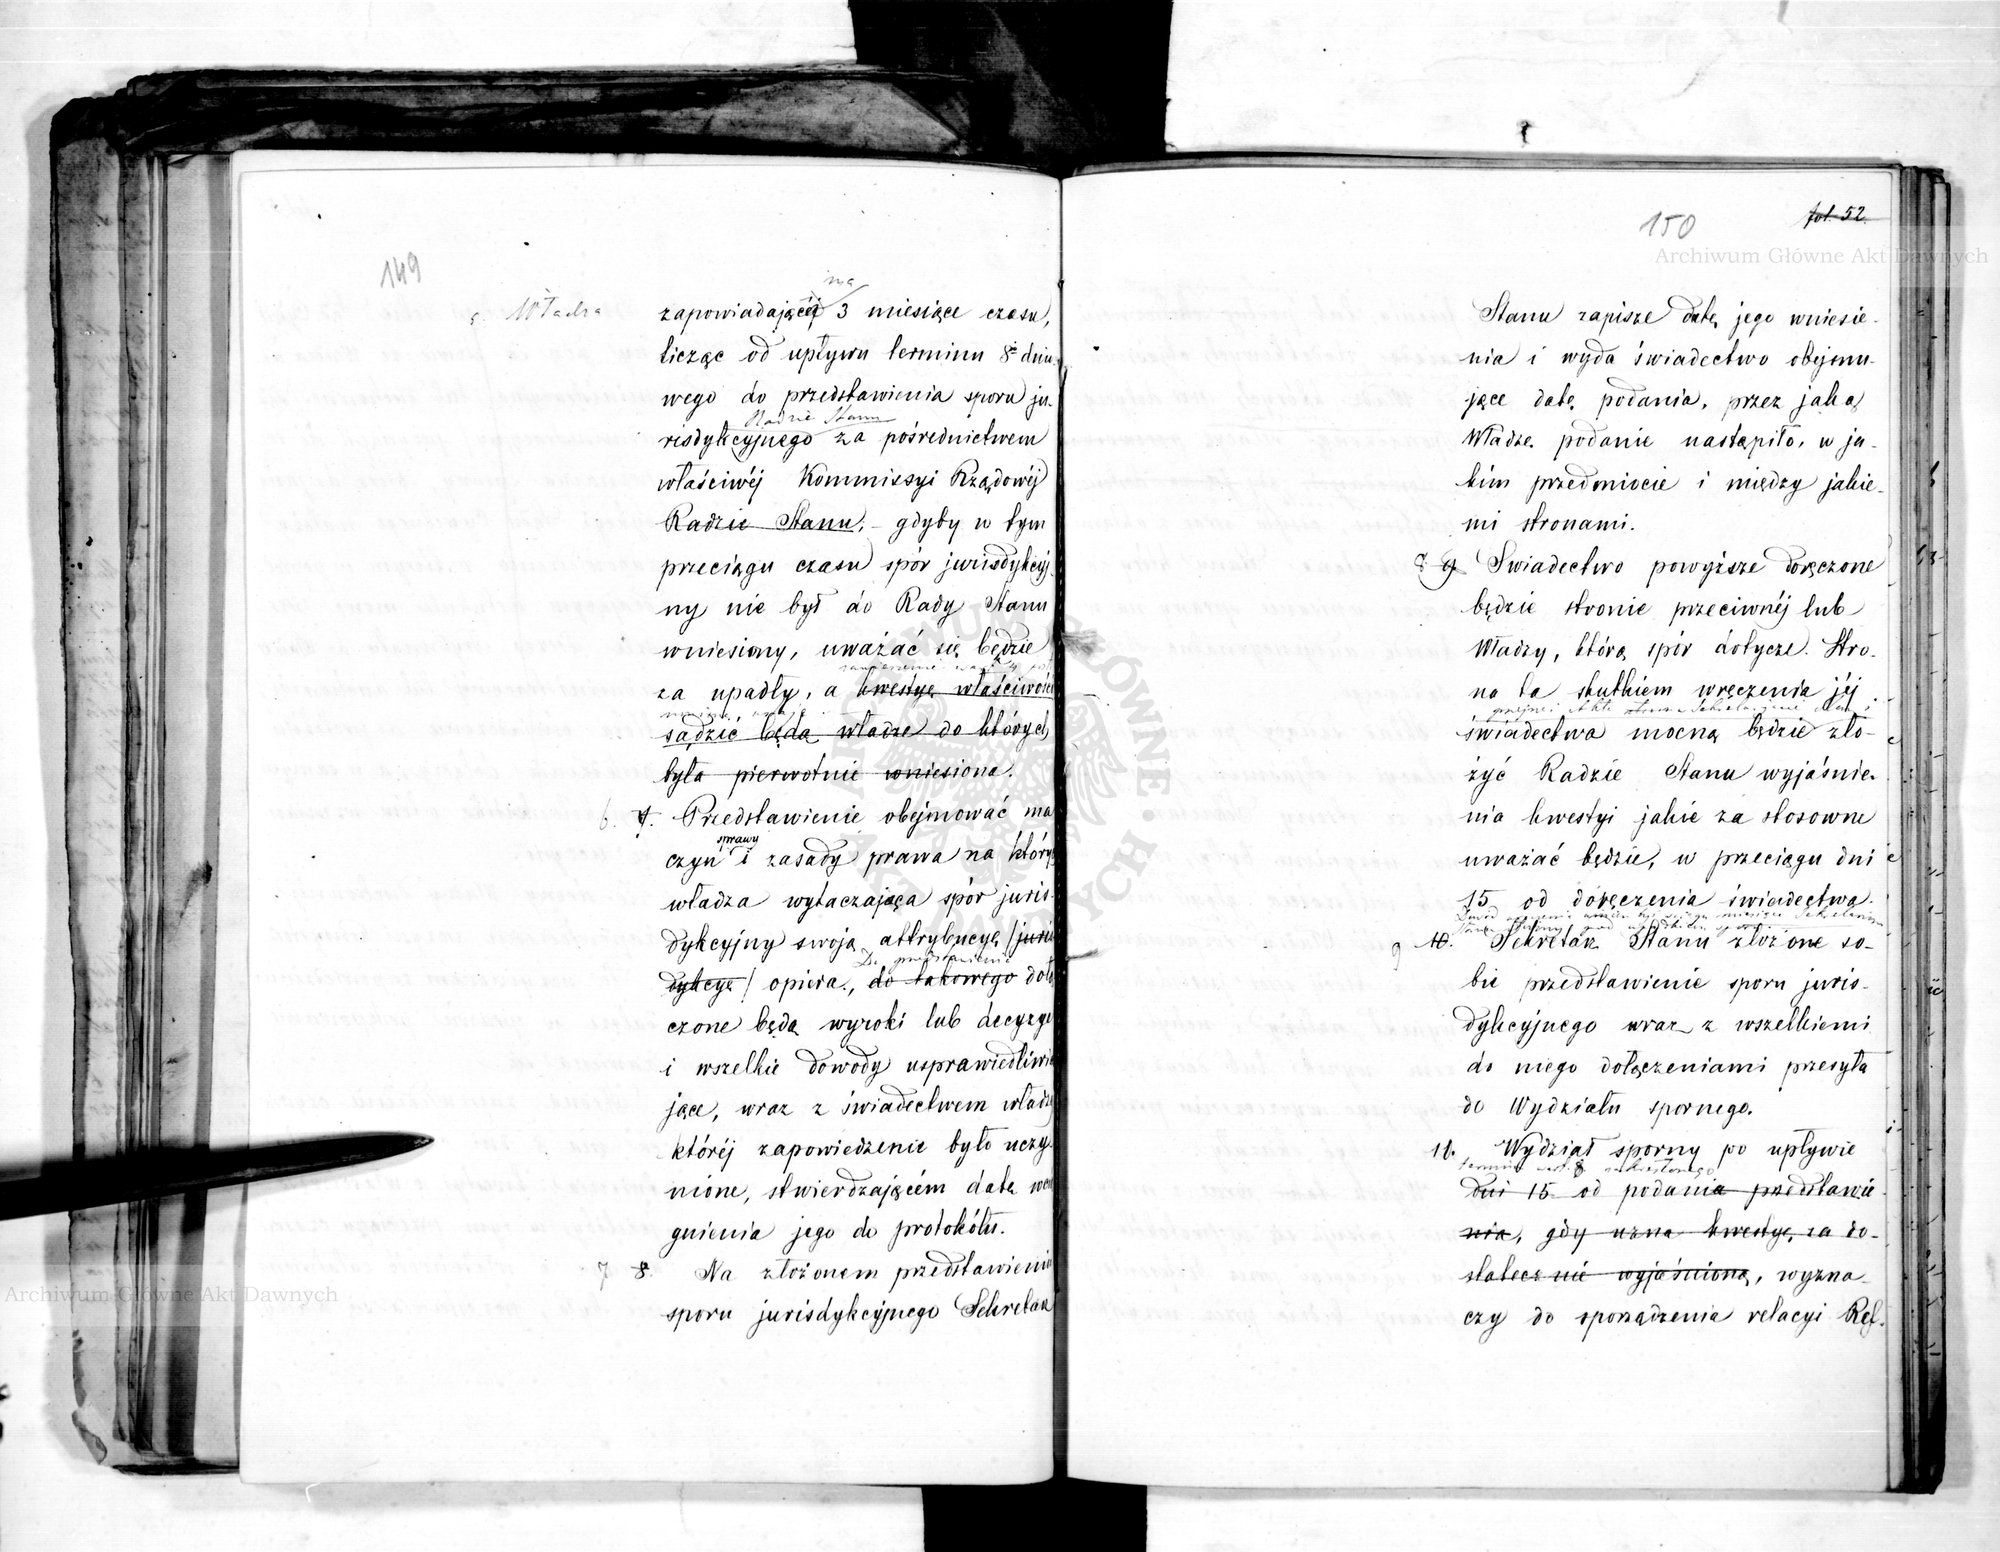 149
ma
5. Władza
zapowiadającéj 3 miesiące czasu,
licząc od upływu terminu 8º dnio-
wego do przedstawienia sporu ju-
Radzie Stanu
risdykcyjnego za pośrednictwem
właściwéj Kommissyi Rządowéj
Radzie Stanu; - gdyby w tym
przeciągu czasu spór jurisdykcyj-
ny nie był do Rady Stanu
wniesiony, uważać się będzie
za upadły, a kwestyę właściwości
sądzić będą władze do których
była pierwotnie wniesiona.
6. 7. Przedstawienie obejmować ma
sprawy
czyn i zasady prawa na których
władza wytaczająca spór juris-
dykcyjny swoją attrybucyę /juris
Do przedstawienia
dykcyę/ opiera., do takowego dołą
czone będą wyroki lub decyzye
i wszelkie dowody usprawiedliwia
jące, wraz z świadectwem władzy
któréj zapowiedzenie było uczy-
nione, stwierdzającém datę wcią
gnienia jego do protokółu.
7 8. Na złożonem przedstawieniu
sporu jurisdykcyjnego Sekretarz
150
fol. 52.
Stanu zapisze datę jego wniesie-
nia i wyda świadectwo obejmu-
jące datę podania, przez jaką
Władzę podanie nastąpiło, w ja-
kim przedmiocie i między jakie-
mi stronami.
8 9 Swiadectwo powyższe doręczone
będzie stronie przeciwnéj lub
Władzy, którą spór dotycze. Stro-
na ta skutkiem wręczenia jéj
świadectwa mocną będzie zło-
żyć Radzie Stanu wyjaśnie-
nia kwestyi jakie za stosowne
uważać będzie, w przeciągu dni
15 od doręczenia świadectwa.
9 10. Sekretarz Stanu złożone so-
bie przedstawienie sporu juris-
dykcyjnego wraz z wszelkiemi
do niego dołączeniami przesyła
do Wydziału spornego.
11. Wydział sporny po upływie
dni 15 od podania przedstawie-
nia, gdy uzna kwestyę, za do-
statecznie wyjaśnioną, wyzna-
czy do sporządzenia relacyi Ref.
Archiwum Główne Akt Dawnych
Archiwum Główne Akt Dawnych